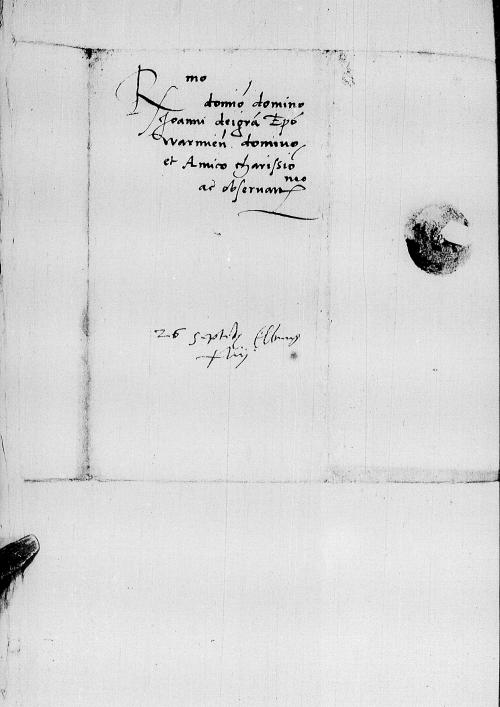 R mo
domió domino
Joanni deigrá Epó
Warmień. domino
et Amico charissio
ac observan mo
26 septeb
xliij